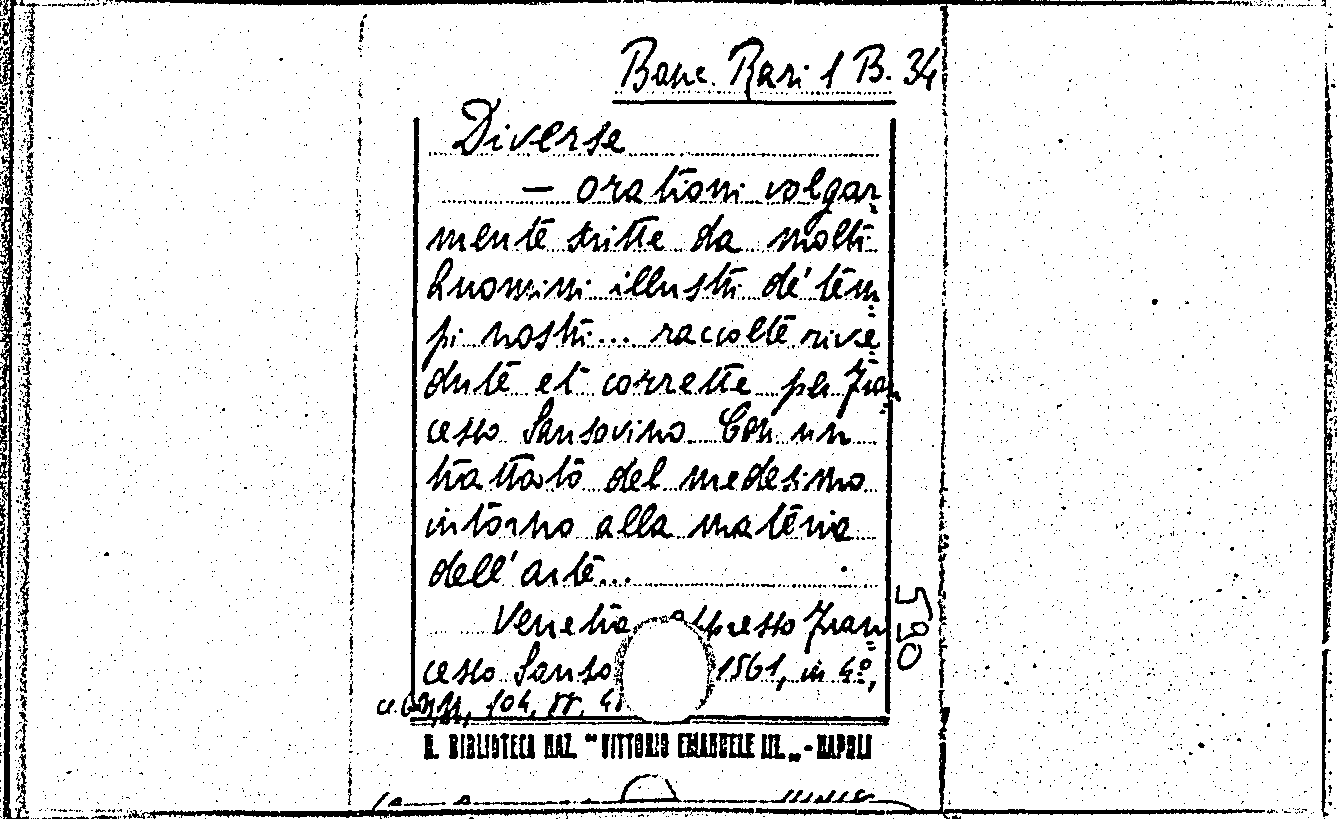 Banc. Rari 1 B. 34
Diverse
— orationi volgar
mente scritte da molti
huomini illustri de' tem
pi nostri... raccolte rive
dute et corrette per Fran
cesco Sansovino Con un
trattato del medesimo
intorno alla materia
dell'arte...
Venetia appresso Fran
cesco Sanso 1561, in 4º,
104,
590
R. BIBLIOTECA NAZ. "VITTORIO EMANUELE III." - NAPOLI